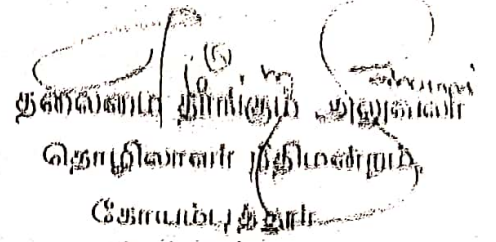 தலைமை நிர்வாக அலுவலர்
தொழிலாளர் நீதிமன்றம்,
கோயம்புத்தூர்